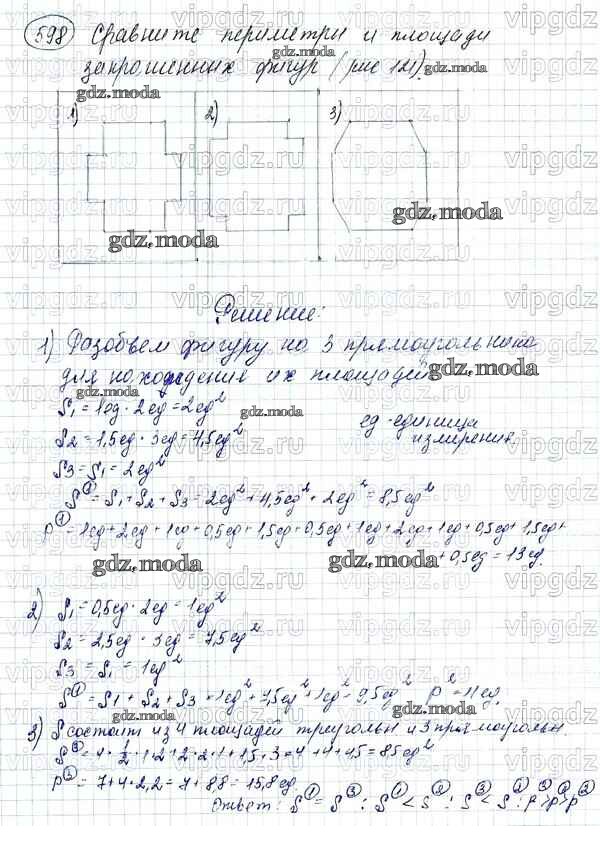 598 Сравните периметры и площади
закрошенных фигур (рис 121).
1) 2) 3)
Решение:
1) Разобьем фигуру на 3 прямоугольника
для нахождения их площадей
S₁ = 1ед · 2ед = 2ед²
ед - единица
измерения.
S₂ = 1,5ед · 3ед = 4,5ед²
S₃ = S₁ = 2ед²
S① = S₁ + S₂ + S₃ = 2ед² + 4,5ед² + 2ед² = 8,5ед²
P① = 1ед + 2ед + 1ед + 0,5ед + 1,5ед + 0,5ед + 1ед + 2ед + 1ед + 0,5ед + 1,5ед +
+ 0,5ед = 13ед.
2) S₁ = 0,5ед · 2ед = 1ед²
S₂ = 2,5ед · 3ед = 7,5ед²
S₃ = S₁ = 1ед²
S = S₁ + S₂ + S₃ = 1ед² + 7,5ед² + 1ед² = 9,5ед² P² = 11ед.
3) S состоит из 4 площадей триугольн и 3 прямоугольн.
= 8,5ед²
= 7 + 4 · 2,2 = 7 + 8,8 = 15,8ед.
Ответ: S① = S③; S① < S②; S③ < S②; P③ > P① > P②
gdz.moda
vipgdz.ru